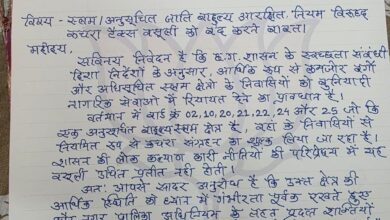 विषय - स्लम/अनुसूचित जाति बाहुल्य आरक्षित, नियम विरूद्ध
कचरा टैक्स वसूली को बंद करने बाबत।
महोदय,
सविनय निवेदन है कि छ.ग. शासन के स्वच्छता संबंधी
दिशा निर्देशों के अनुसार, आर्थिक रूप से कमजोर वर्गों
और अधिसूचित स्लम क्षेत्रों के निवासियों को बुनियादी
नागरिक सेवाओं में रियायत देने का प्रावधान है।
वर्तमान में वार्ड क्र. 02,10,20,21,22,24 और 25 जो कि
एक अनुसूचित बाहुल्य स्लम क्षेत्र है, वहां के निवासियों से
नियमित रूप से कचरा संग्रहण का शुल्क लिया जा रहा है।
शासन की लोक कल्याण कारी नीतियों की परिप्रेक्ष्य में यह
वसूली उचित प्रतीत नहीं होती।
अतः आपसे सादर अनुरोध है कि उक्त क्षेत्र की
आर्थिक स्थिति को ध्यान में गंभीरता पूर्वक रखते हुए
नगर पालिका अधिनियम के तहत प्रदत्त शक्तियों